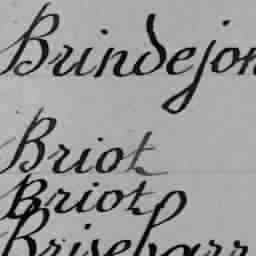 Brindejon
Briot
Briot
Brisebarr